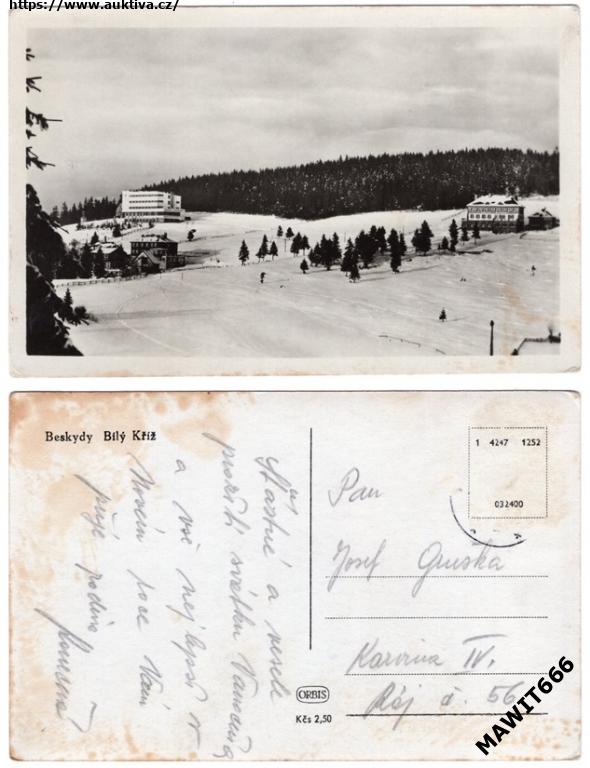 https://www.auktiva.cz/
Beskydy Bílý Kříž
1 4247 1252
032400
Šťastné a veselé
prožití svátků Vánočních
a vše nejlepší v
Novém roce Vám
přeje rodina
Pan
Josef
Karviná IV.
Ráj č. 56
ORBIS
Kčs 2,50
MAWIT666